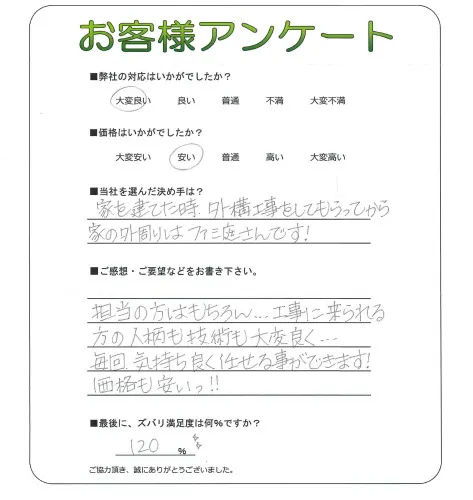 お客様アンケート
■弊社の対応はいかがでしたか？
大変良い 良い 普通 不満 大変不満
■価格はいかがでしたか？
大変安い 安い 普通 高い 大変高い
■当社を選んだ決め手は？
家を建てた時、外構工事をしてもらってから
家の外周りはファミ庭さんです!
■ご感想・ご要望などをお書き下さい。
担当の方はもちろん…工事に来られる
方の人柄も技術も大変良く…
毎回気持ち良く任せる事ができます!
価格も安いっ!!
■最後に、ズバリ満足度は何%ですか？
120 %
ご協力頂き、誠にありがとうございました。